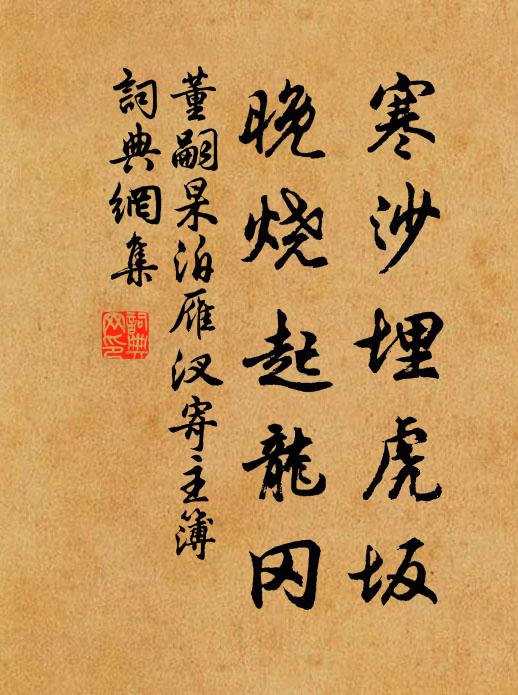 寒沙埋虎坂
晚烧起龍冈
董嗣杲泊雁汊寄主簿
詞典網集
詞典网印